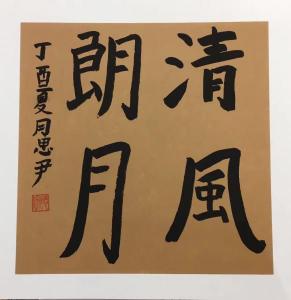 清風
朗月
丁酉夏周思尹